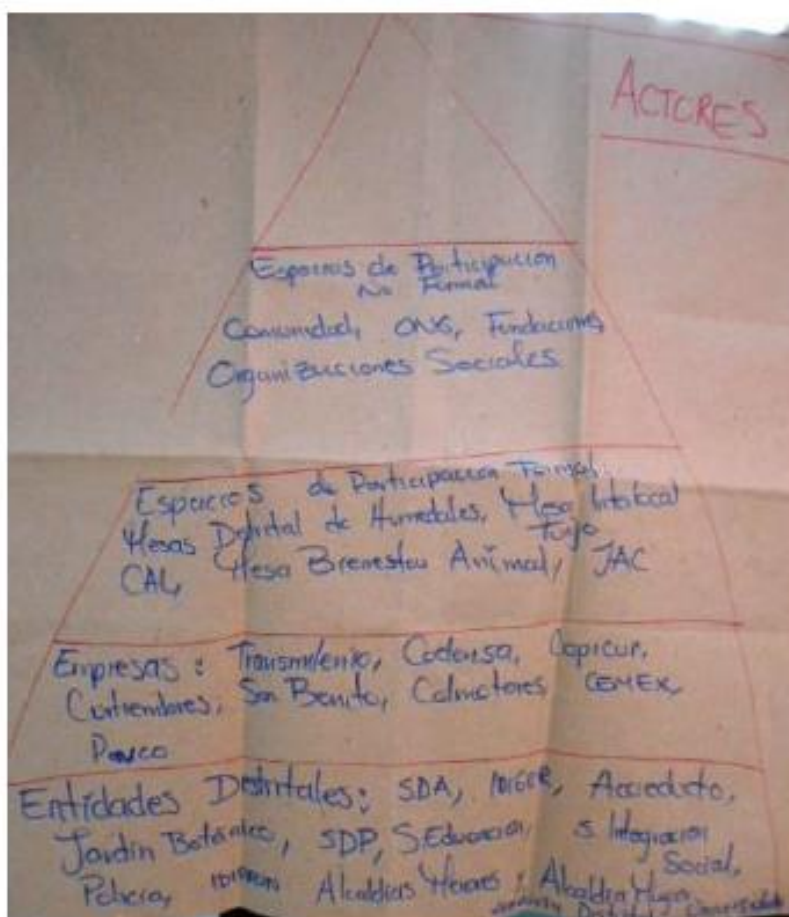 ACTORES
Espacios de Participacion
No Formal
Comunidad, ONG, Fundaciones,
Organizaciones Sociales
Espacios de Participacion Formal:
Mesas Distrital de Humedales, Mesa Interlocal
Tunjo
CAL, Mesa Bienestar Animal, JAC
Empresas: Transmilenio, Codensa,
Curtiembres, San Benito, Colmotores, CEMEX,
Entidades Distritales: SDA, IDIGER, Acueducto,
Jardin Botánico, SDP, S. Educacion, S. Integracion
Social,
Policia, IDIPRON Alcaldias Menores, Alcaldia Mayor,
Distrital, Universidad